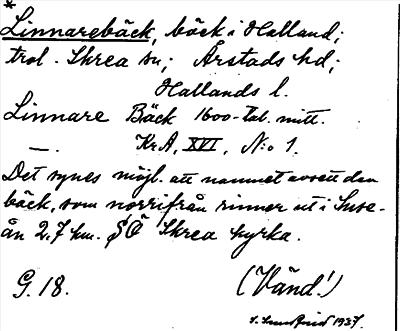 *
Linnarebäck, bäck i Halland;
trol. Skrea sn; Årstads hd;
Hallands l.
Linnare Bäck 1600-tal. mitt.
—. KrA, XVI, N:o 1.
Det synes möjl. att namnet avsett den
bäck, som norrifrån rinner ut i Suse-
ån 2,7 km. SÖ Skrea kyrka.
G. 18.
(Vänd!)
1937.